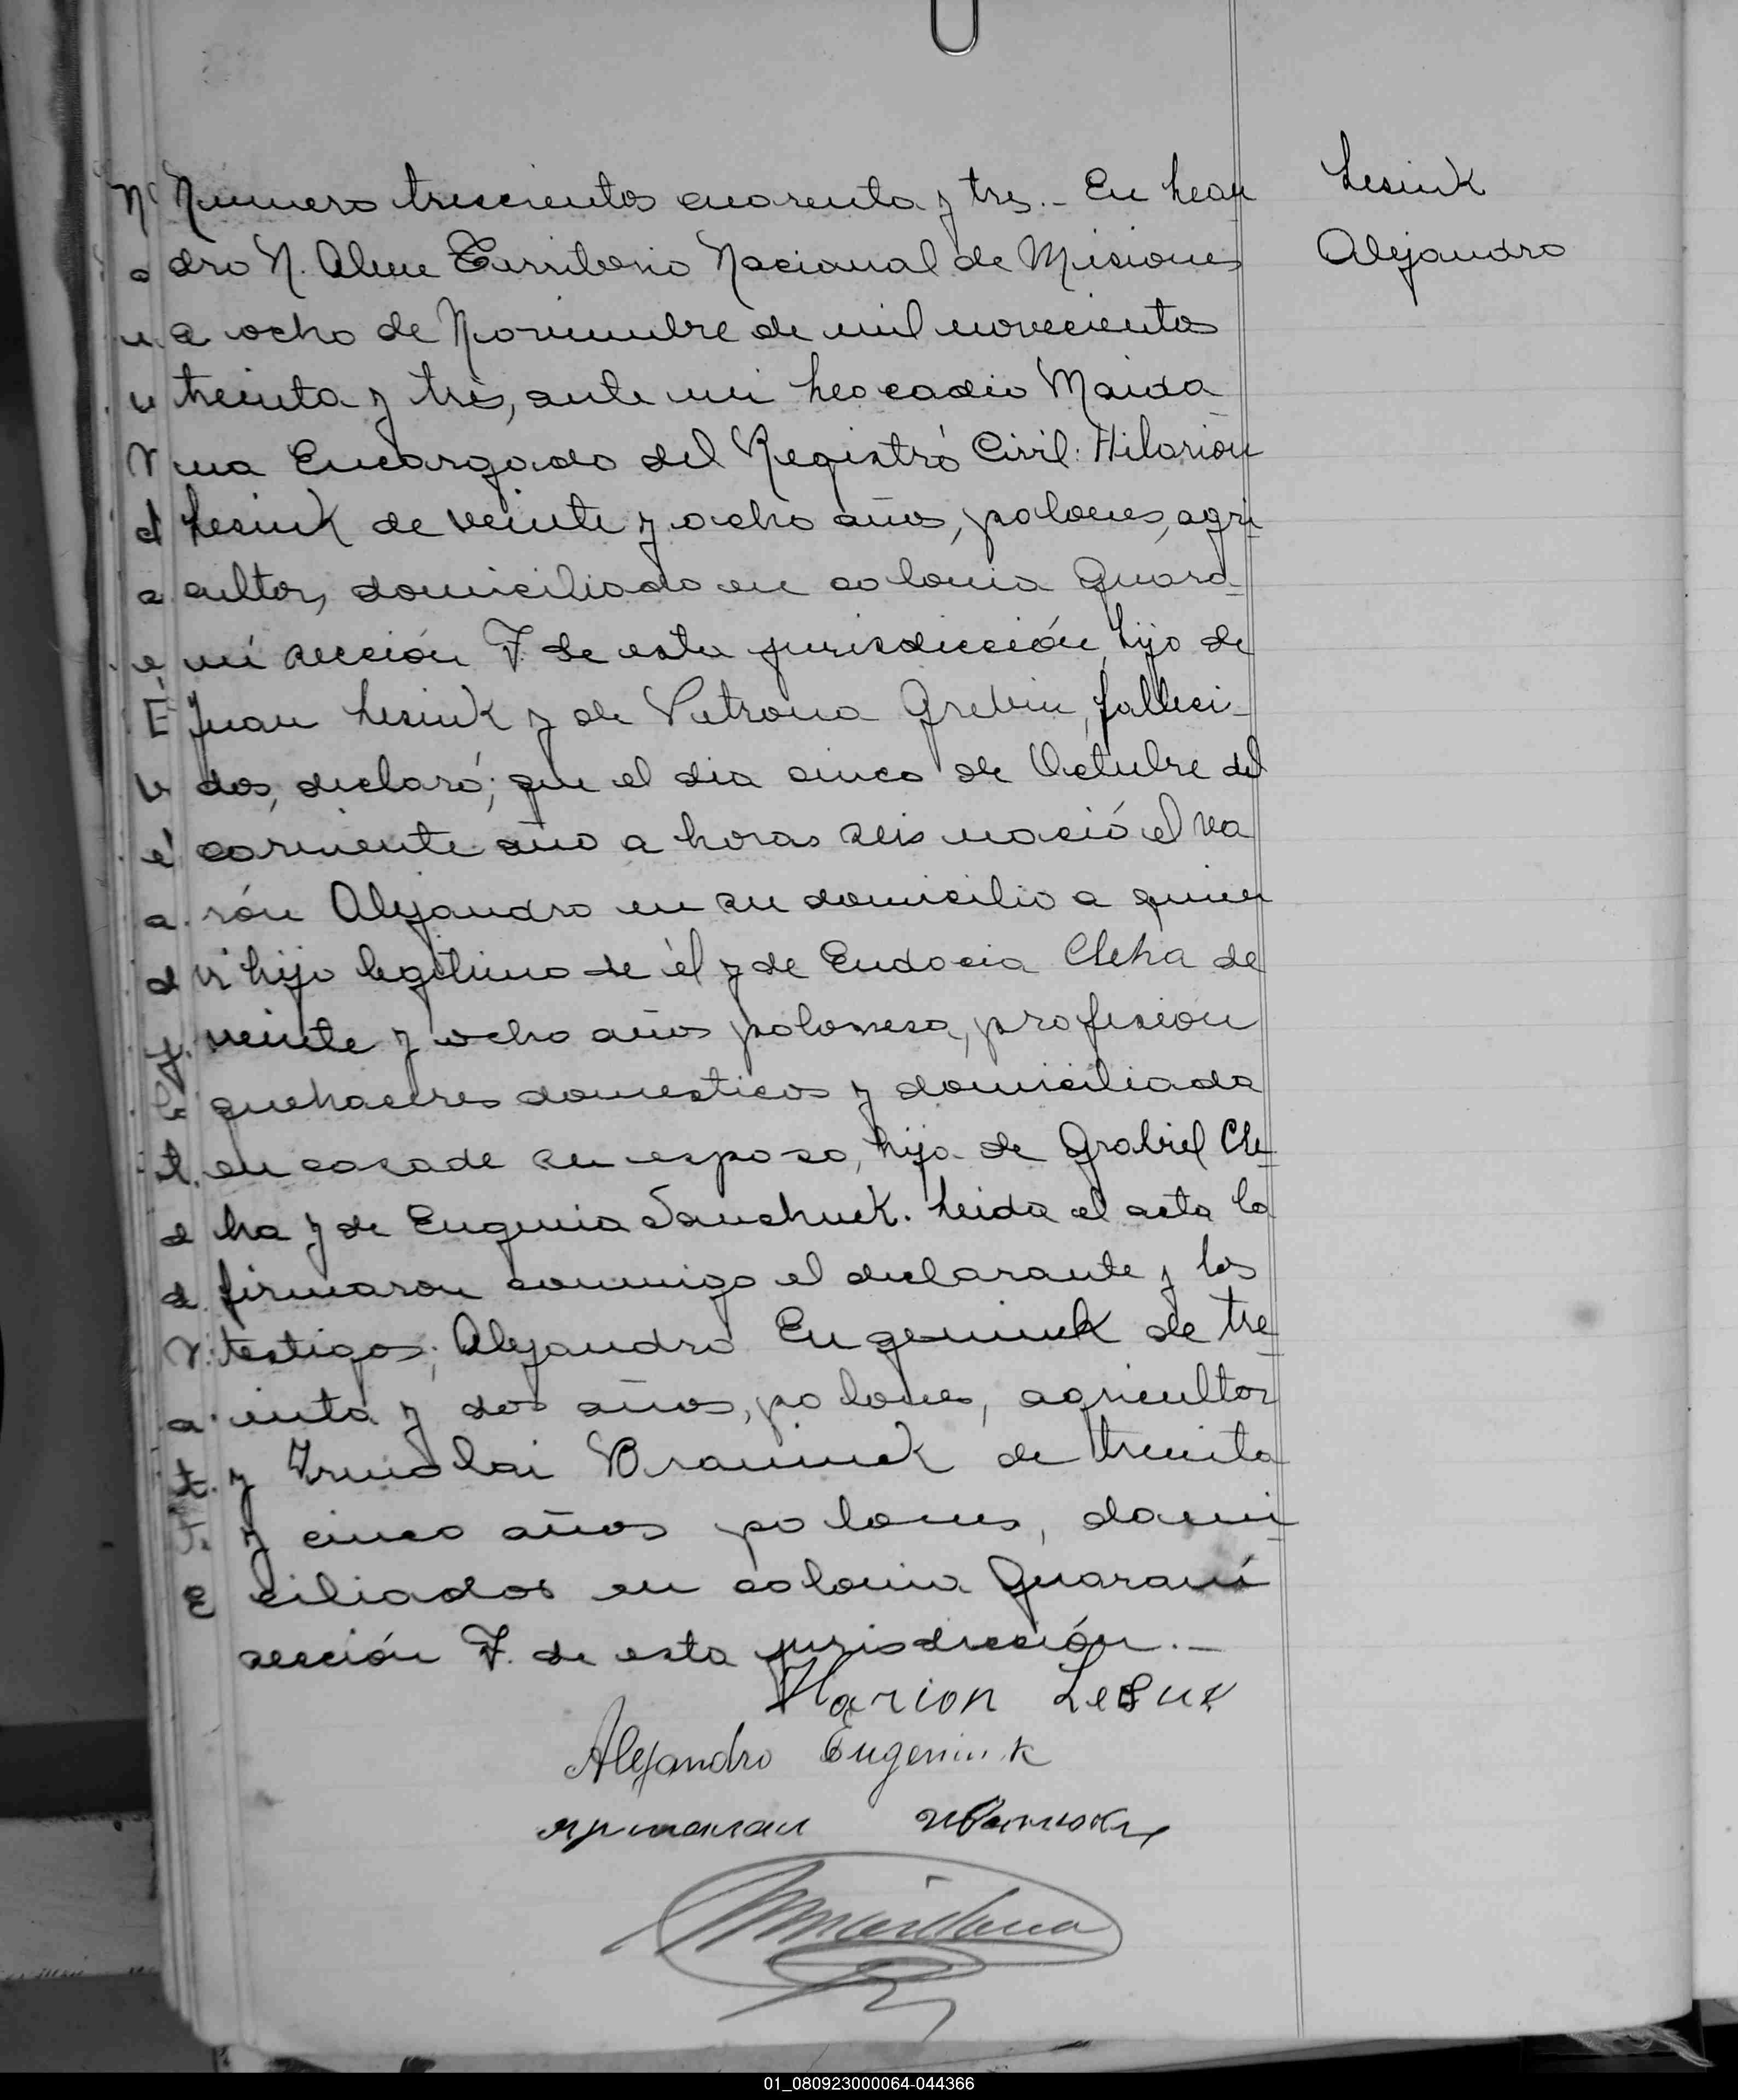 Lesiuk
Alejandro
Número trescientos cuarenta y tres.- En Lean
dro N. Alem Territorio Nacional de Misiones
a ocho de Noviembre de mil novecientos
treinta y tres, ante mi Leocadio Maida
na Encargado del Registro Civil: Hilarión
Lesiuk de veinte y ocho años, polones, agri-
cultor, domiciliado en colonia Guara-
ní sección V. de esta jurisdicción, hijo de
Juan Lesiuk y de Petrona Grebin, falleci-
dos, declaró; que el dia cinco de Octubre del
corriente año a horas seis nació el va
rón Alejandro en su domicilio a quien
vi hijo legítimo de él y de Eudocia Cleha de
veinte y ocho años polonesa, profesion
quehaceres domesticos y domiciliada
en casa de su esposo, hija de Grabiel Cle-
ha y de Eugenia Sauchuek. Leida el acta la
firmaron conmigo el declarante y los
testigos; Alejandro Eugeniuk de tre-
inta y dos años, polones, agricultor
y de treinta
y cinco años polones, domi-
ciliados en colonia Guaraní
sección V. de esta jurisdicción.-
Harion Lesuk
Alejandro Eugeniuk
01_080923000064-044366